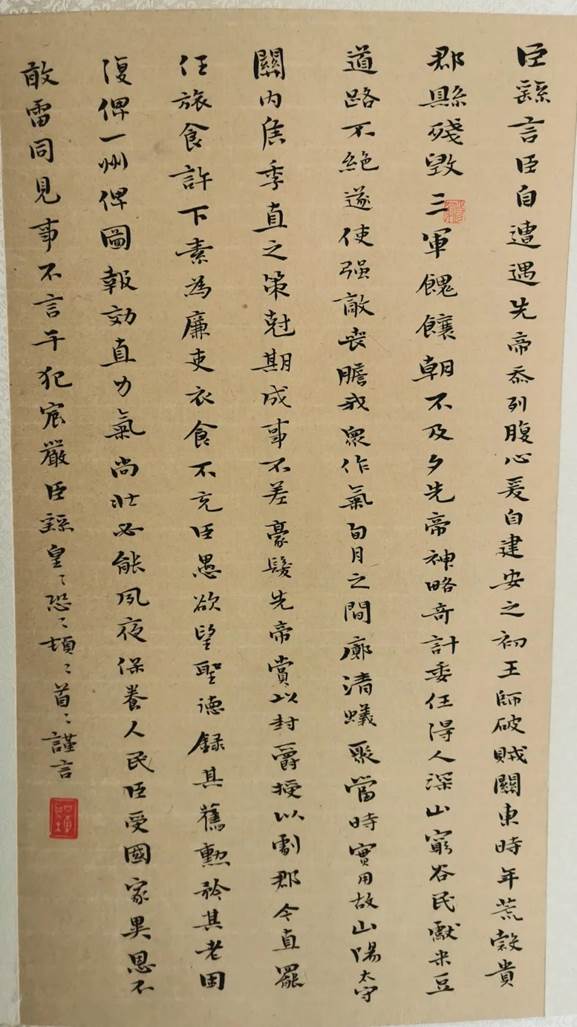 臣繇言臣自遭遇先帝忝列腹心爰自建安之初王師破賊關東時年荒穀貴
郡縣殘毀三軍餽饟朝不及夕先帝神略奇計委任得人深山窮谷民獻米豆
道路不絕遂使强敵喪膽我衆作氣旬月之間廓清蟻聚當時實用故山陽太守
關內矦季直之策尅期成事不差豪髮先帝賞以封爵授以劇郡今直罷
任旅食許下素為廉吏衣食不充臣愚欲望聖德錄其舊勳矜其老困
復俾一州俾圖報効直力氣尚壯必能夙夜保養人民臣受國家異恩不
敢雷同見事不言干犯宸嚴臣繇皇〻恐〻頓〻首〻謹言